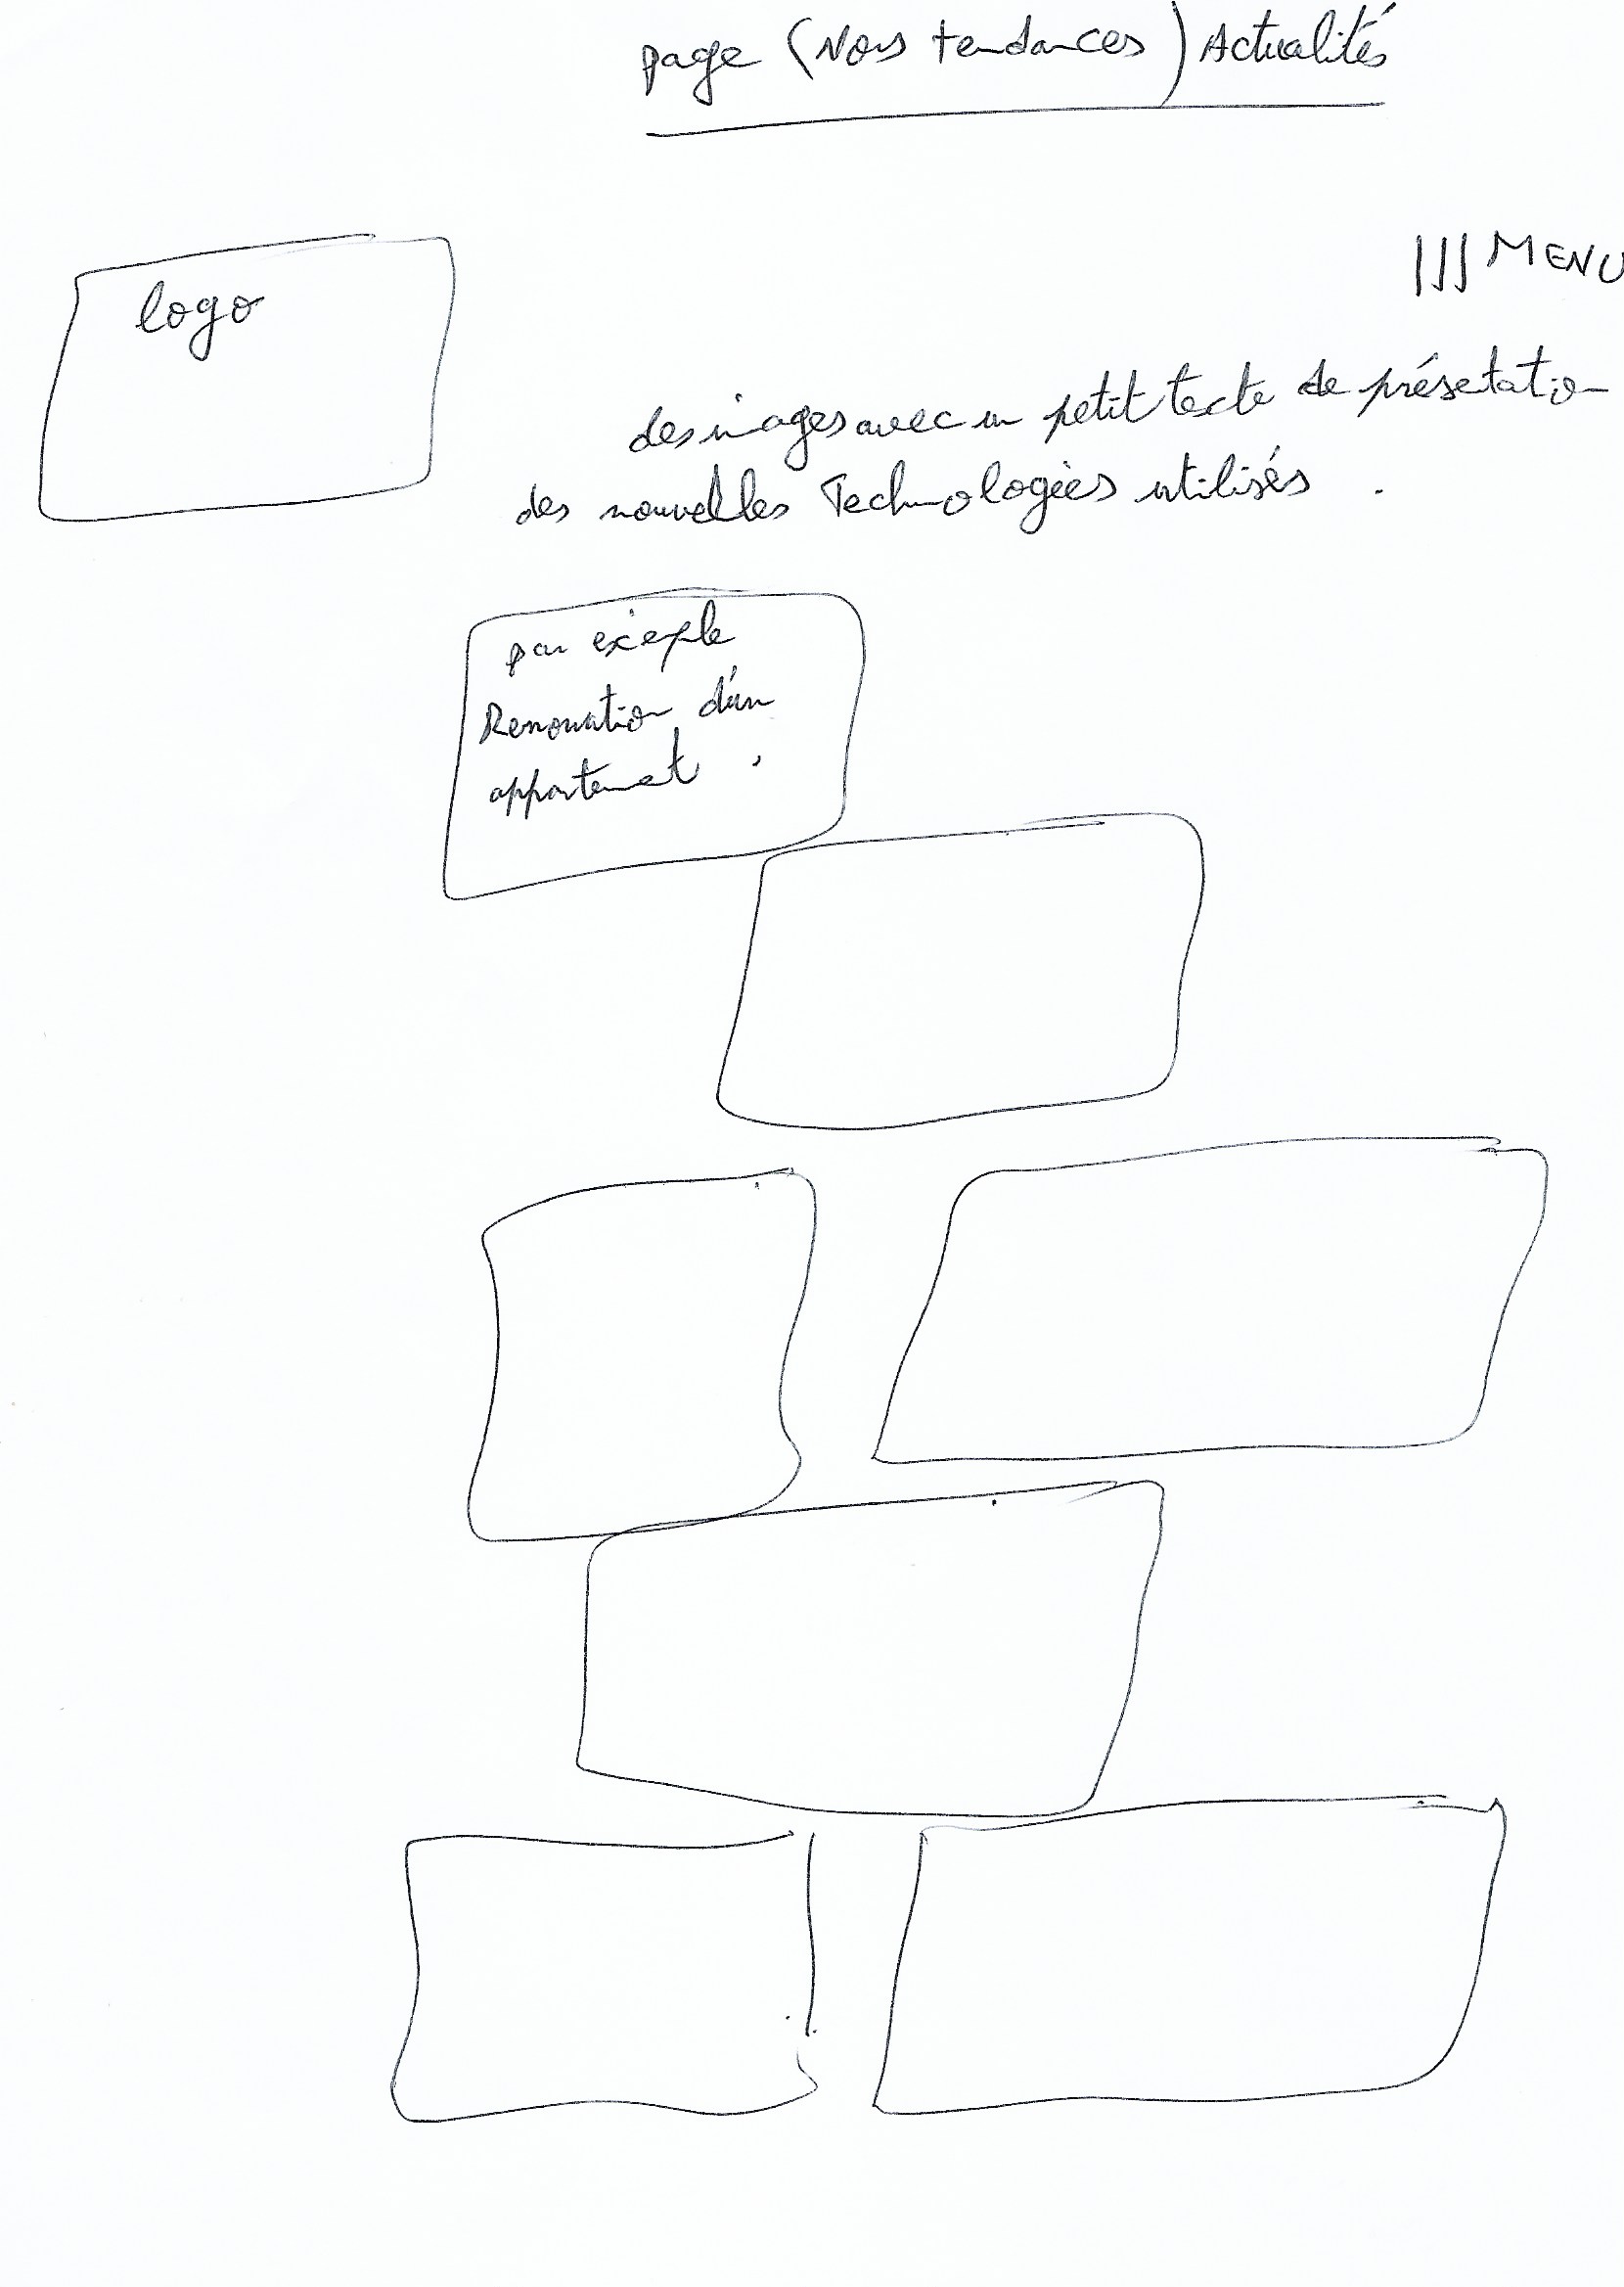 page (Nos tendances) Actualités
logo
MENU
des images avec un petit texte de présentation
des nouvelles Technologies utilisés .
par exemple
Renovation d'un
appartement .